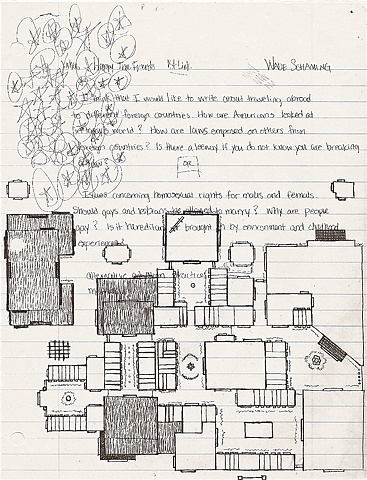 Happy Time Friends WADE SCHAMING
I think that I would like to write about traveling abroad
to different foreign countries. How are Americans looked at
in today's world? How are laws emposed on others from
foreign countries? Is there a leeway if you do not know you are breaking
a law?
OR
Issues concerning homosexual rights for males and females.
Should gays and lesbians be allowed to marry? Why are people
gay? Is it hereditary or brought on by environment and childhood
experiences?
alternative